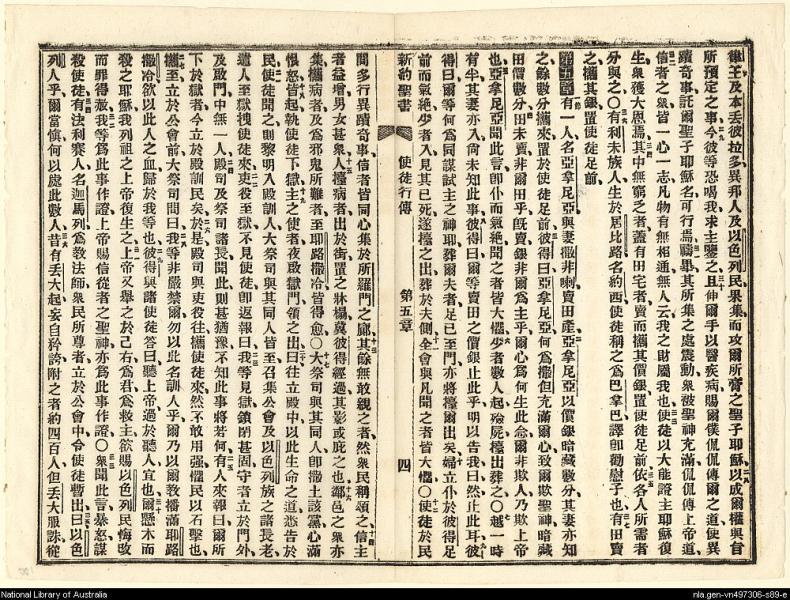 王及本丟彼拉多異邦人及以色列民果集而攻爾所膏之聖子耶穌以成爾權與旨
所預定之事今彼等恐喝我求主鑒之且伸爾手以醫疾病賜爾僕侃侃傳爾之道使異
蹟奇事託爾聖子耶穌名可行焉禱畢其所集之處震動衆被聖神充滿侃侃傳上帝道
信者之衆皆一心一志凡物有無相通無人云我之財屬我也使徒以大能證主耶穌復
生衆獲大恩焉其中無窮乏者蓋有田宅者賣而攜其價銀置使徒足前依各人所需者
分與之○有利未族人生於居比路名約西使徒稱之爲巴拿巴譯卽勸慰子也有田賣
之攜其銀置使徒足前
第五章有一人名亞拿尼亞與妻撒非喇賣田產亞拿尼亞以價銀暗藏數分其妻亦知
之餘數分攜來置於使徒足前彼得曰亞拿尼亞何爲撒但充滿爾心致爾欺聖神暗藏
田價數分田未賣非爾田乎旣賣銀非爾爲主乎爾心爲何生此念爾非欺人乃欺上帝
也亞拿尼亞聞此言卽仆而氣絶聞之者皆大懼少者數人起殮屍擡出葬之○越一時
有半其妻亦入尚未知此事彼得曰爾等賣田之價銀止此乎明以告我曰然止此耳彼
得曰爾等何爲同謀試主之神耶葬爾夫者足已至門亦將擡爾出矣婦立仆於彼得足
前而氣絶少者入見其已死遂擡之出葬於夫側全會與凡聞之者皆大懼○使徒於民
新約聖書 使徒行傳 第五章 四
間多行異蹟奇事信者皆同心集於所羅門之廊其餘無敢親之者然衆民稱頌之信主
者益增男女甚衆人擡病者出於街置之牀榻冀彼得經過其影或庇之也鄰邑之衆亦
集攜病者及爲邪鬼所難者至耶路撒冷皆得愈○大祭司與其同人卽撒土該黨心滿
恨怒皆起執使徒下獄主之使者夜啟獄門領之出曰往立殿中以此生命之道悉告於
民使徒聞之則黎明入殿訓人大祭司與其同人皆至召集公會及以色列族之諸長老
遣人至獄拽使徒來吏役至獄不見使徒卽返報曰我等見獄鎖閉甚固守者立於門外
及啟門中無一人殿司及祭司諸長聞此則甚猶豫不知此事將若何有人來報曰爾所
下於獄者今立於殿訓民矣於是殿司與吏役往攜使徒來然不敢用强懼民以石擊也
攜至立於公會前大祭司問曰我等非嚴禁爾勿以此名訓人乎爾乃以爾教播滿耶路
撒冷欲以此人之血歸於我等也彼得與諸使徒答曰聽上帝過於聽人宜也爾懸木而
殺之耶穌我列祖之上帝復生之上帝又舉之於己右爲君爲救主欲賜以色列民悔改
而罪得赦我等爲此事作證上帝賜信從者之聖神亦爲此事作證○衆聞此言暴怒謀
殺使徒有法利賽人名迦馬列爲教法師衆民所尊者立於公會中令使徒暫出曰以色
列人乎爾當慎何以處此數人昔有丟大起妄自矜誇附之者約四百人但丟大服誅從
National Library of Australia
nla.gen-vn497306-s89-e